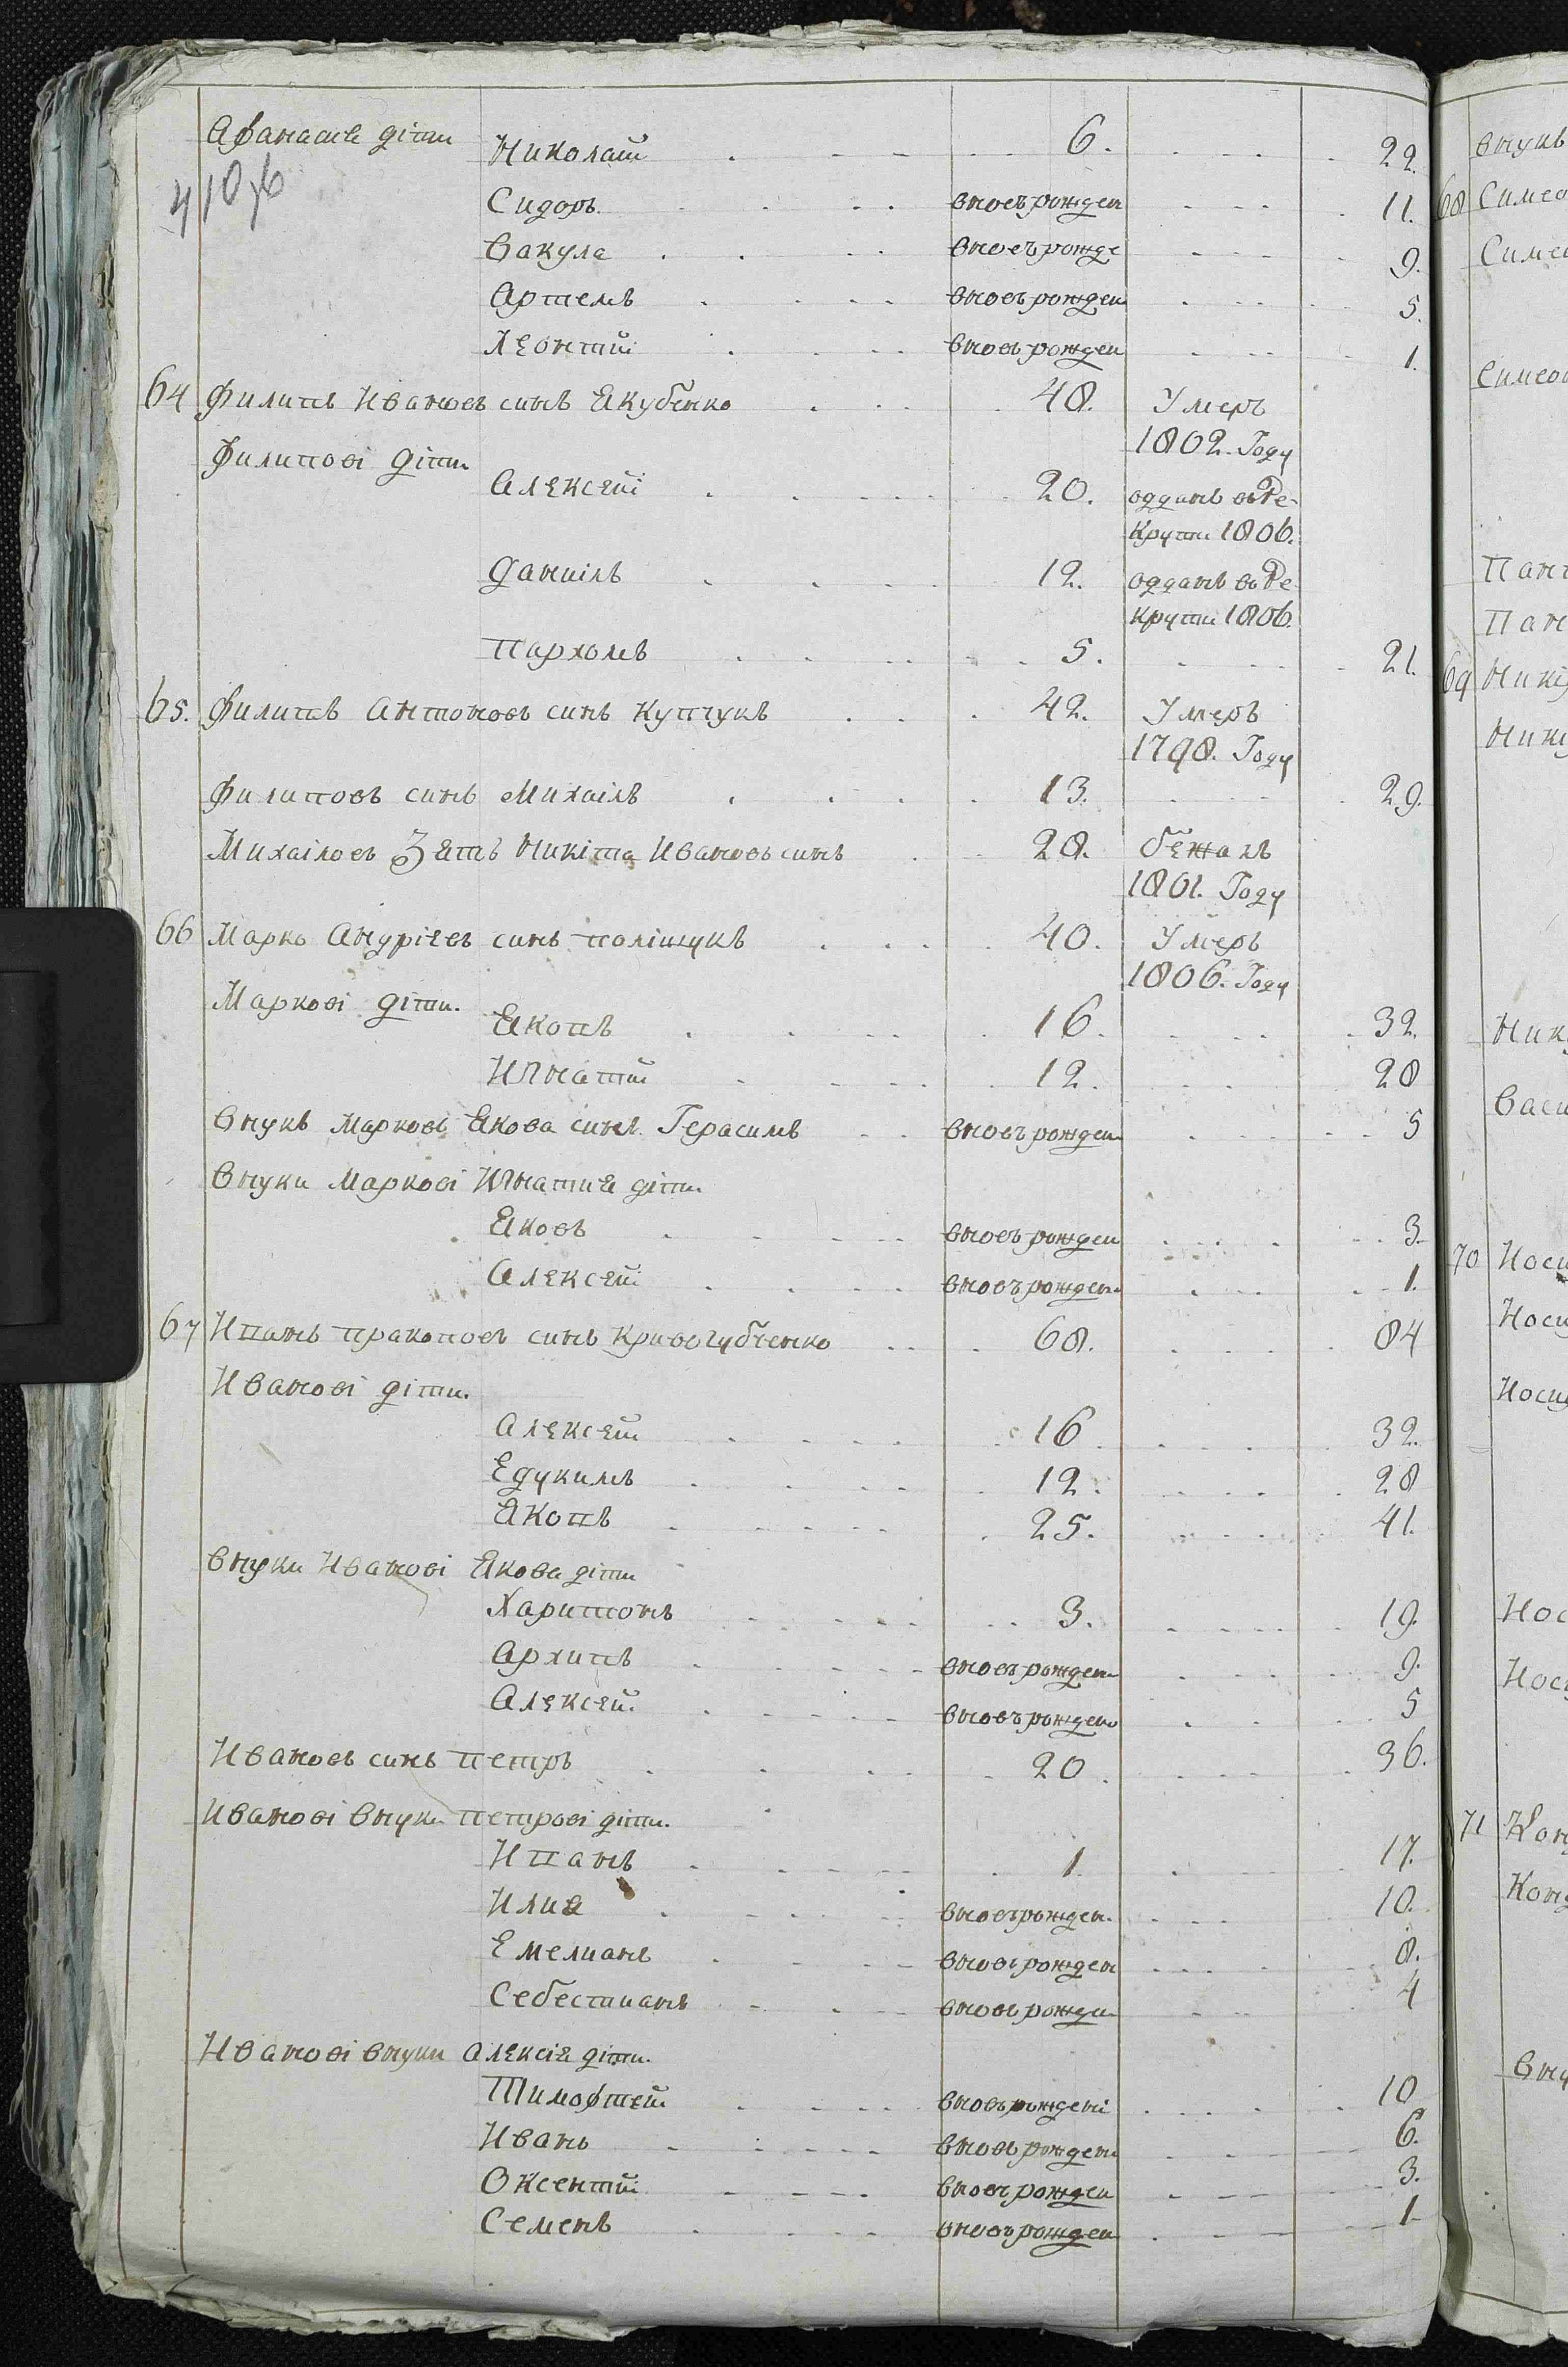 Афанасия діти
41об
Николай 6. 22.
Сидоръ вновъ рожден 11.
Вакула вновъ рожде 9.
Артемъ вновъ рожден 5.
Леонтий вновъ рожден 1.
64 Филипъ Ивановъ синъ Якубенко 48. Умеръ
1802. Году
Филипові діти
Алексей 20. одданъ въ Ре-
крути 1806.
Даниілъ 12. одданъ въ Ре-
крути 1806.
Пархомъ 5. 21.
65. Филипъ Антоновъ синъ Купчукъ 42. Умеръ
1798. Году
Филиповъ синъ Михаілъ 13. 29.
Михаіловъ Зять Никіта Ивановъ синъ 28. бежалъ
1801. Году
66 Марко Андріевъ синъ Поліщукъ 40. Умеръ
1806. Году
Маркові діти.
Якопъ 16. 32.
Игнатий 12. 28
Внукъ Марковъ Якова синъ Герасимъ вновъ рожден 5
Внуки Маркові Игнатия діти.
Яковъ вновъ рожден 3.
Алексей вновъ рожден 1.
67 Ипанъ Пракоповъ синъ Кривогубченко 68. 84
Иванові діти.
Алексей 16. 32.
Едукимъ 12. 28
Якопъ 25. 41.
Внуки Иванові Якова діти
Харитонъ 3. 19.
Архипъ вновъ рожден 9.
Алексей вновъ рожден 5
Ивановъ синъ Петръ 20. 36.
Иванові Внуки Петрові діти.
Ипанъ 1 17.
Илия вновъ рожден. 10.
Емелианъ вновъ рожден 8.
Себестианъ вновъ рожде 4
Иванові внуки Алексія діти.
Тимофтей вновъ рождені 10
Иванъ вновъ рожден 6.
Оксентий вновъ рожден 3.
Семенъ вновъ рожден 1
Внукъ
68 Симео
Симео
Симеон
Пан
Пан
69 Ники
Ники
Ник
Васи
70 Носи
Носи
Носи
Нос
Нос
71 Кон
Конд
Вну